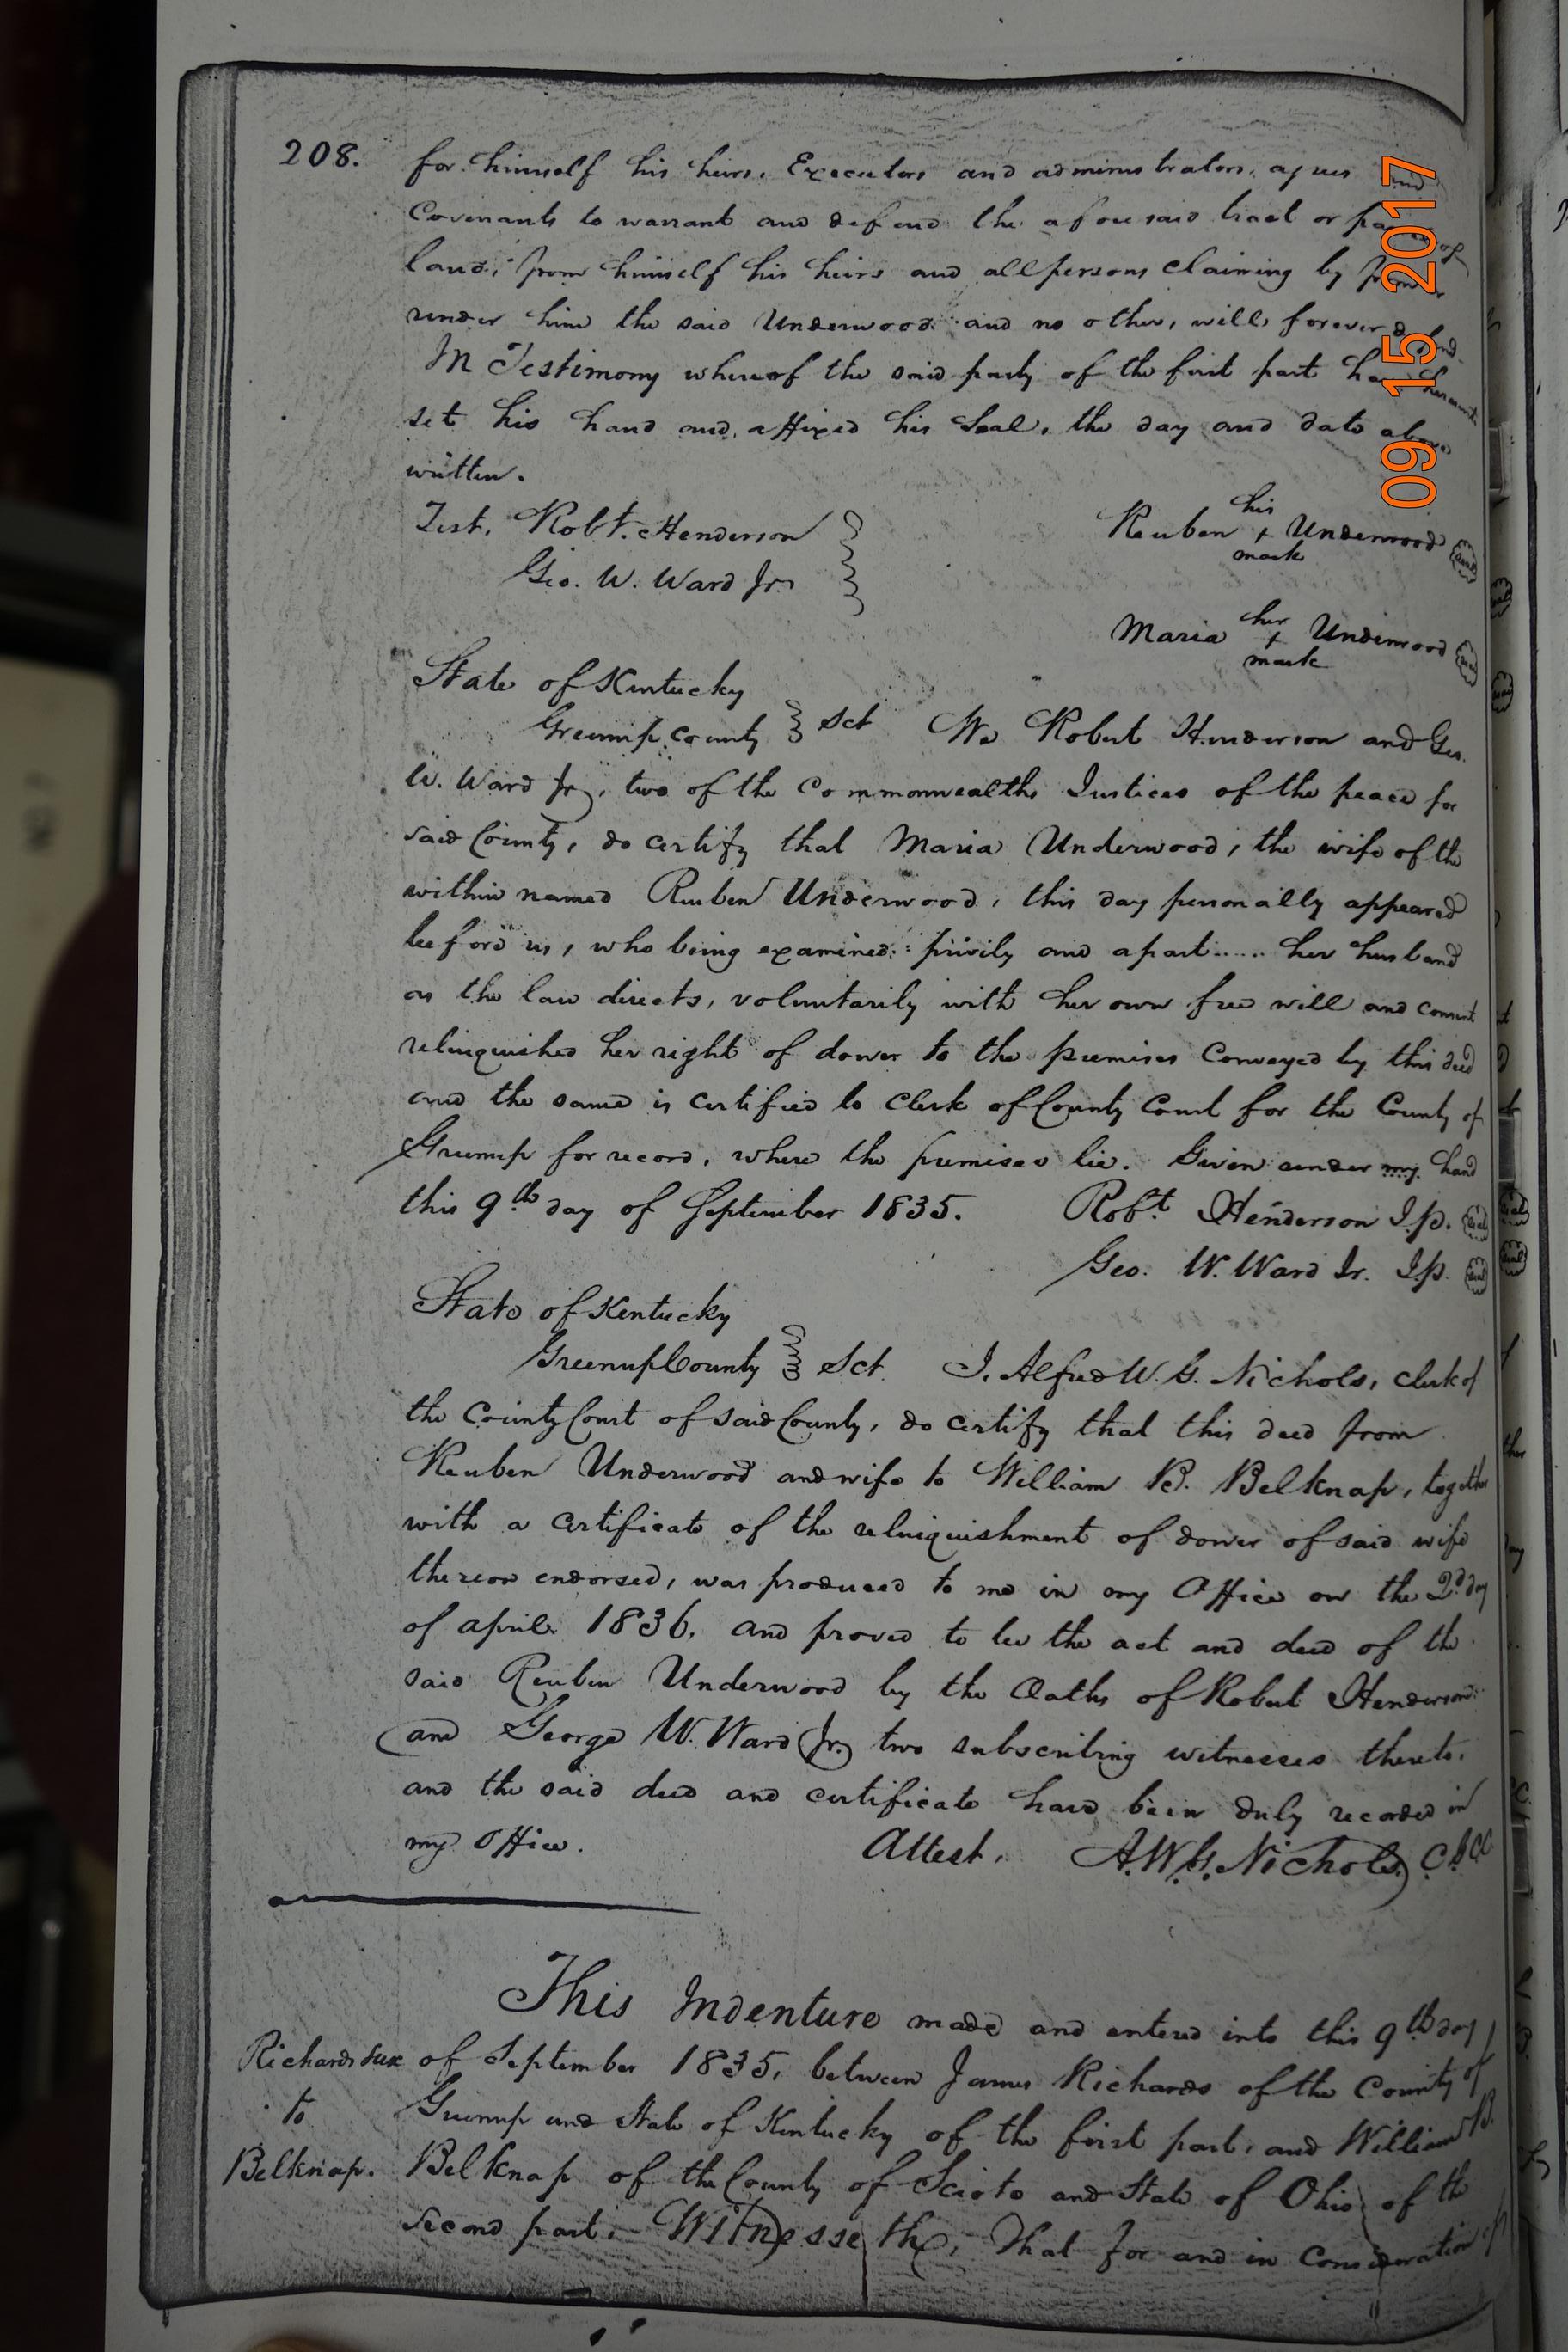 208.
for himself his heirs, Executors and administrators, agrees and
Covenants to warrant and defend the aforesaid tract or
land, from himself his heirs and all persons claiming by from or
under him the said Underwood and no other, will, forever defend.
In Testimony whereof the said party of the first part has hereunto
set his hand and affixed his Seal, the day and date above
written.
Test. Robt. Henderson
Geo. W. Ward Jr.
Reuben his + mark Underwood seal
Maria her + mark Underwood seal
State of Kentucky
Greenup County Sct We Robert Henderson and Geo.
W. Ward Jr, two of the Commonwealths Justices of the peace for
said County, do certify that Maria Underwood, the wife of the
within named Reuben Underwood, this day personally appeared
before us, who being examined privily and apart ..... her husband
as the law directs, voluntarily with her own free will and consent
relinquished her right of dower to the premises Conveyed by this deed
and the same is certified to Clerk of County Court for the County of
Greenup for record, where the premises lie. Given under my hand
this 9th day of September 1835. Robt Henderson J.p. seal
Geo. W. Ward Jr. J.p. seal
State of Kentucky
Greenup County Sct. I, Alfred W. G. Nichols, clerk of
the County Court of said County, do certify that this deed from
Reuben Underwood and wife to William B. Belknap, together
with a certificate of the relinquishment of dower of said wife
thereon endorsed, was produced to me in my Office on the 2d day
of april 1836, and proved to be the act and deed of the
said Reuben Underwood by the Oaths of Robert Henderson
and George W. Ward (Jr.) two subscribing witnesses thereto,
and the said deed and certificate have been duly recorded in
my Office. Attest, A.W.G. Nichols C G C C
This Indenture made and entered into this 9th day
Richards &ux
to
Belknap.
of September 1835, between James Richards of the County of
Greenup and State of Kentucky of the first part, and William B.
Belknap of the County of Scioto and State of Ohio of the
second part, Witnesseth, That for and in Consideration of
09 15 2017